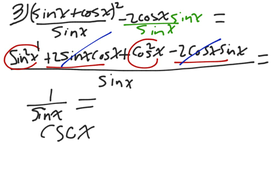 3) (sinx+cosx)² / sinx - 2cosx sinx / sinx =
sin²x + 2sinxcosx + cos²x - 2cosx sinx / sinx =
1 / sinx =
cscx